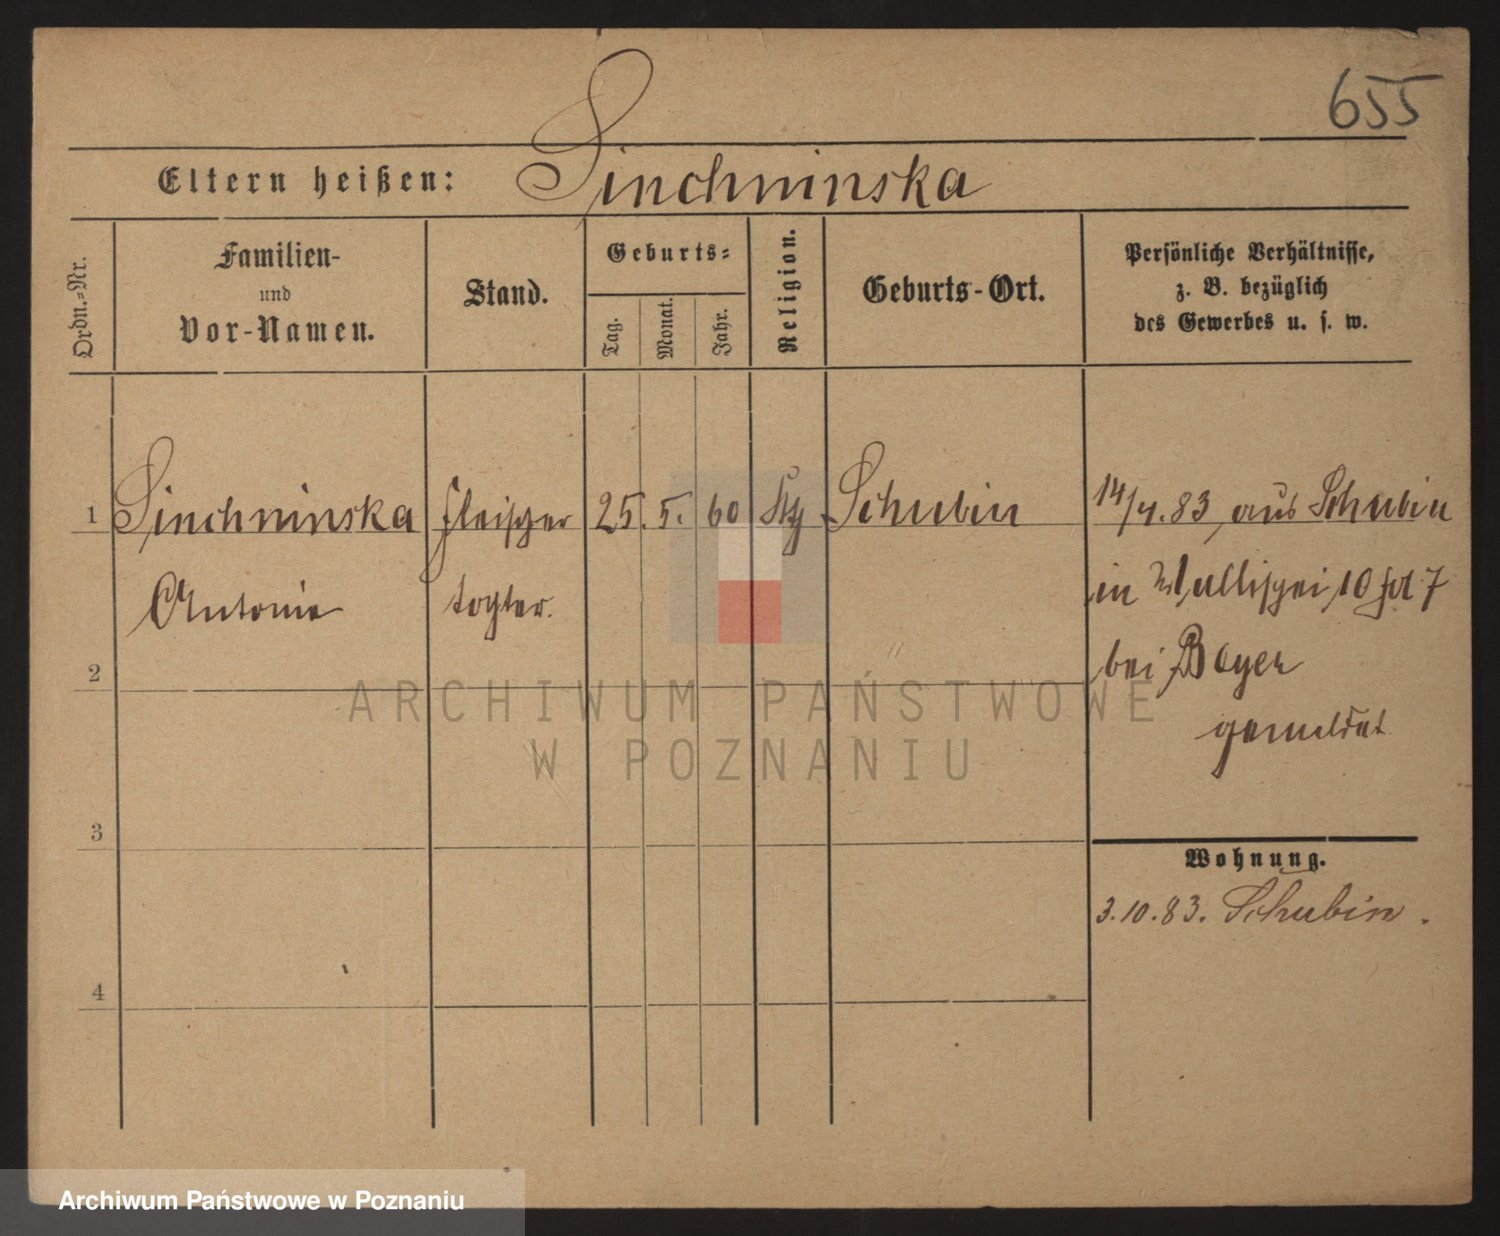 655
Eltern heißen: Sinchninska
Ordn.=Nr.
Familien-
und
Vor-Namen.
Stand.
Geburts=
Tag.
Monat.
Jahr.
Religion.
Geburts-Ort.
Persönliche Verhältnisse,
z. B. bezüglich
des Gewerbes u. s. w.
1 Sinchninska Fleischer 25. 5. 60 Schubin 14/4.83 aus Schubin
Antonie tochter. in Wallischei 10
2 bei Beyer
gemeldet
ARCHIWUM PAŃSTWOWE
W POZNANIU
3
Wohnung.
3.10.83. Schubin.
4
Archiwum Państwowe w Poznaniu